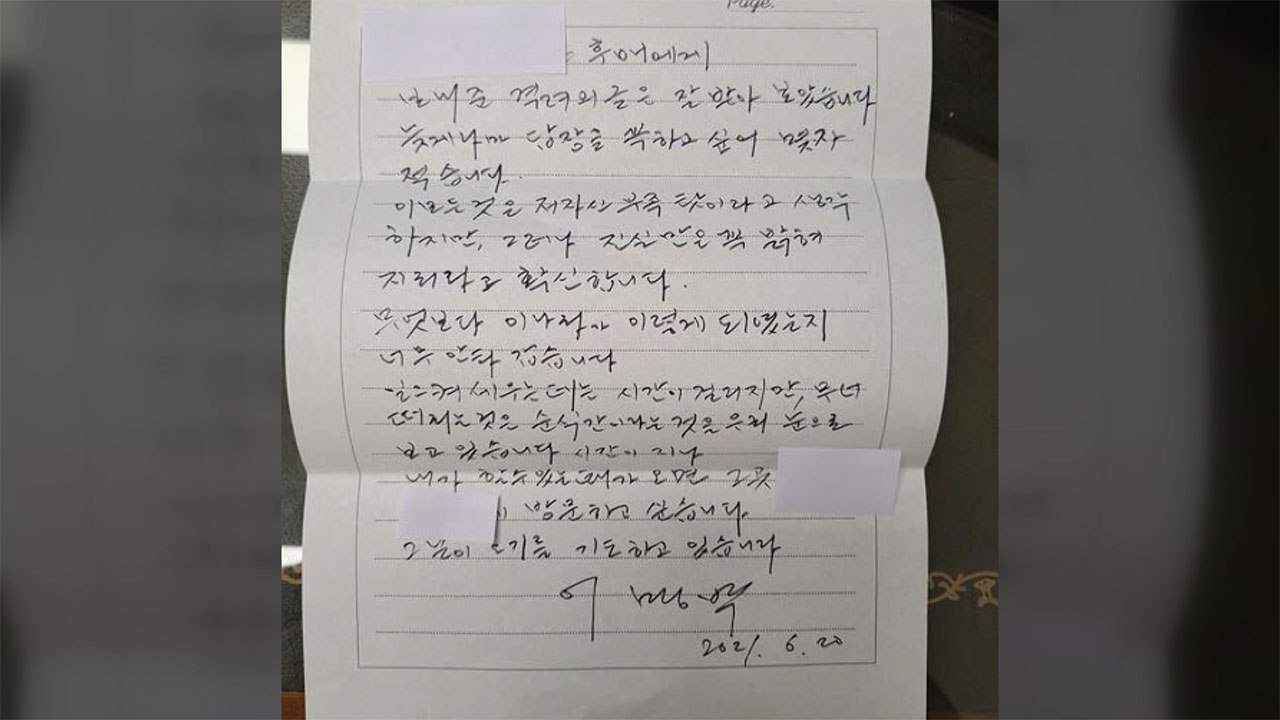 Page.
후배에게
보내준 격려의 글은 잘 받아 보았습니다
늦게나마 답장을 꼭하고 싶어 몇자
적습니다.
이모든것은 저자신 부족 탓이라고 생각
하지만, 그러나 진실만은 꼭 밝혀
지리라고 확신합니다.
무엇보다 이나라가 이렇게 되었는지
너무 안타 깝습니다
일으켜 세우는데는 시간이 걸리지만, 무너
떠지는것은 순식간이라는 것을 우리 눈으로
보고 있습니다 시간이 지나
내가 할수있는때가 오면 그곳
방문하고 싶습니다.
그날이 오기를 기도하고 있습니다
이명박
2021. 6. 20